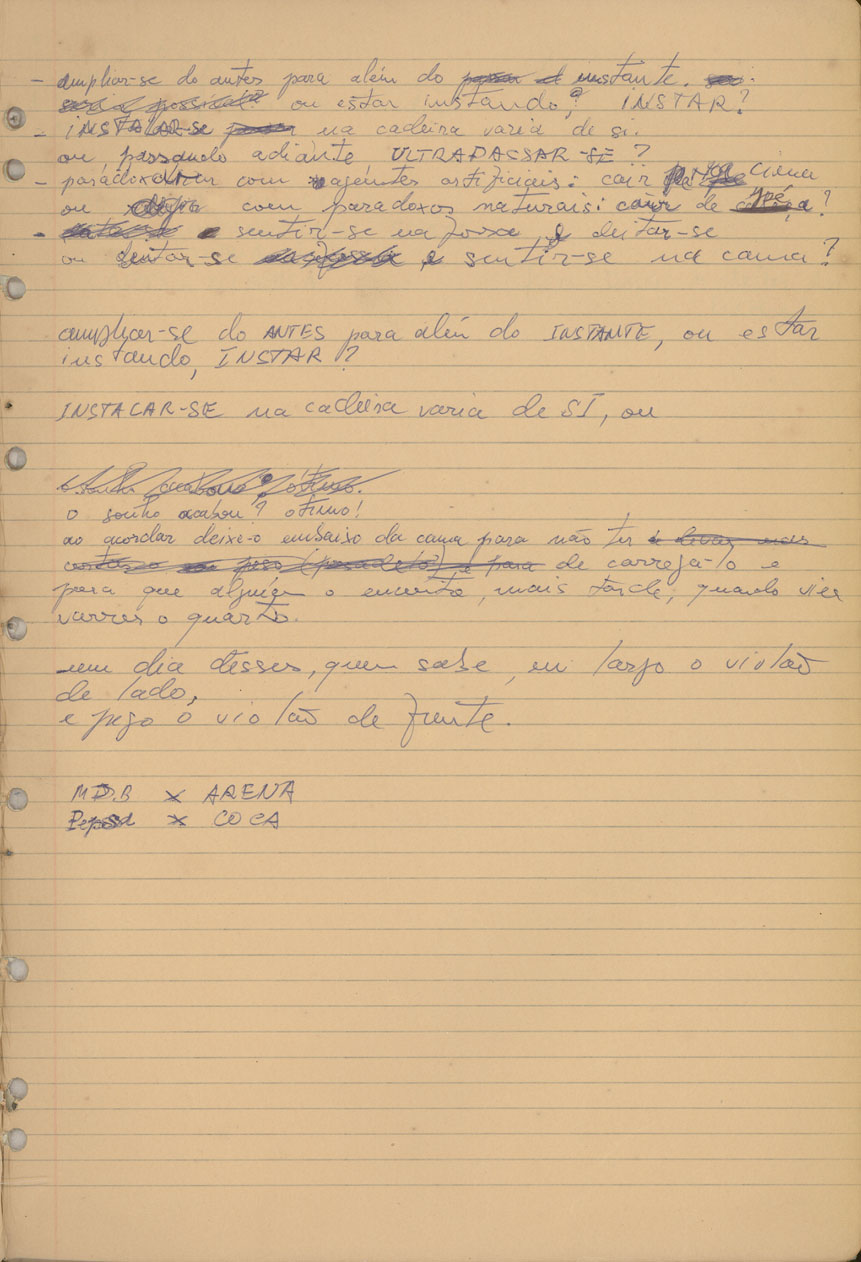 - ampliar-se do antes para além do instante.
ou estar instando? INSTAR?
- INSTALAR-se na cadeira vazia de si.
ou, passando adiante, ULTRAPASSAR-SE?
- paradoxar com agentes artificiais: cair por cima
ou com paradoxos naturais: cair de pé?
- sentir-se na fossa e deitar-se
ou deitar-se e sentir-se na cama?
ampliar-se do ANTES para além do INSTANTE, ou estar
instando, INSTAR?
INSTALAR-SE na cadeira vazia de SI, ou
o sonho acabou? ótimo.
o sonho acabou? otimo!
ao acordar deixe-o embaixo da cama para não ter e levar mais
peso (pesadelo) e para de carregá-lo e
para que alguém o encontre, mais tarde, quando vier
varrer o quarto.
um dia desses, quem sabe, eu largo o violão
de lado,
e pego o violão de frente.
MDB x ARENA
Pepsi x COCA